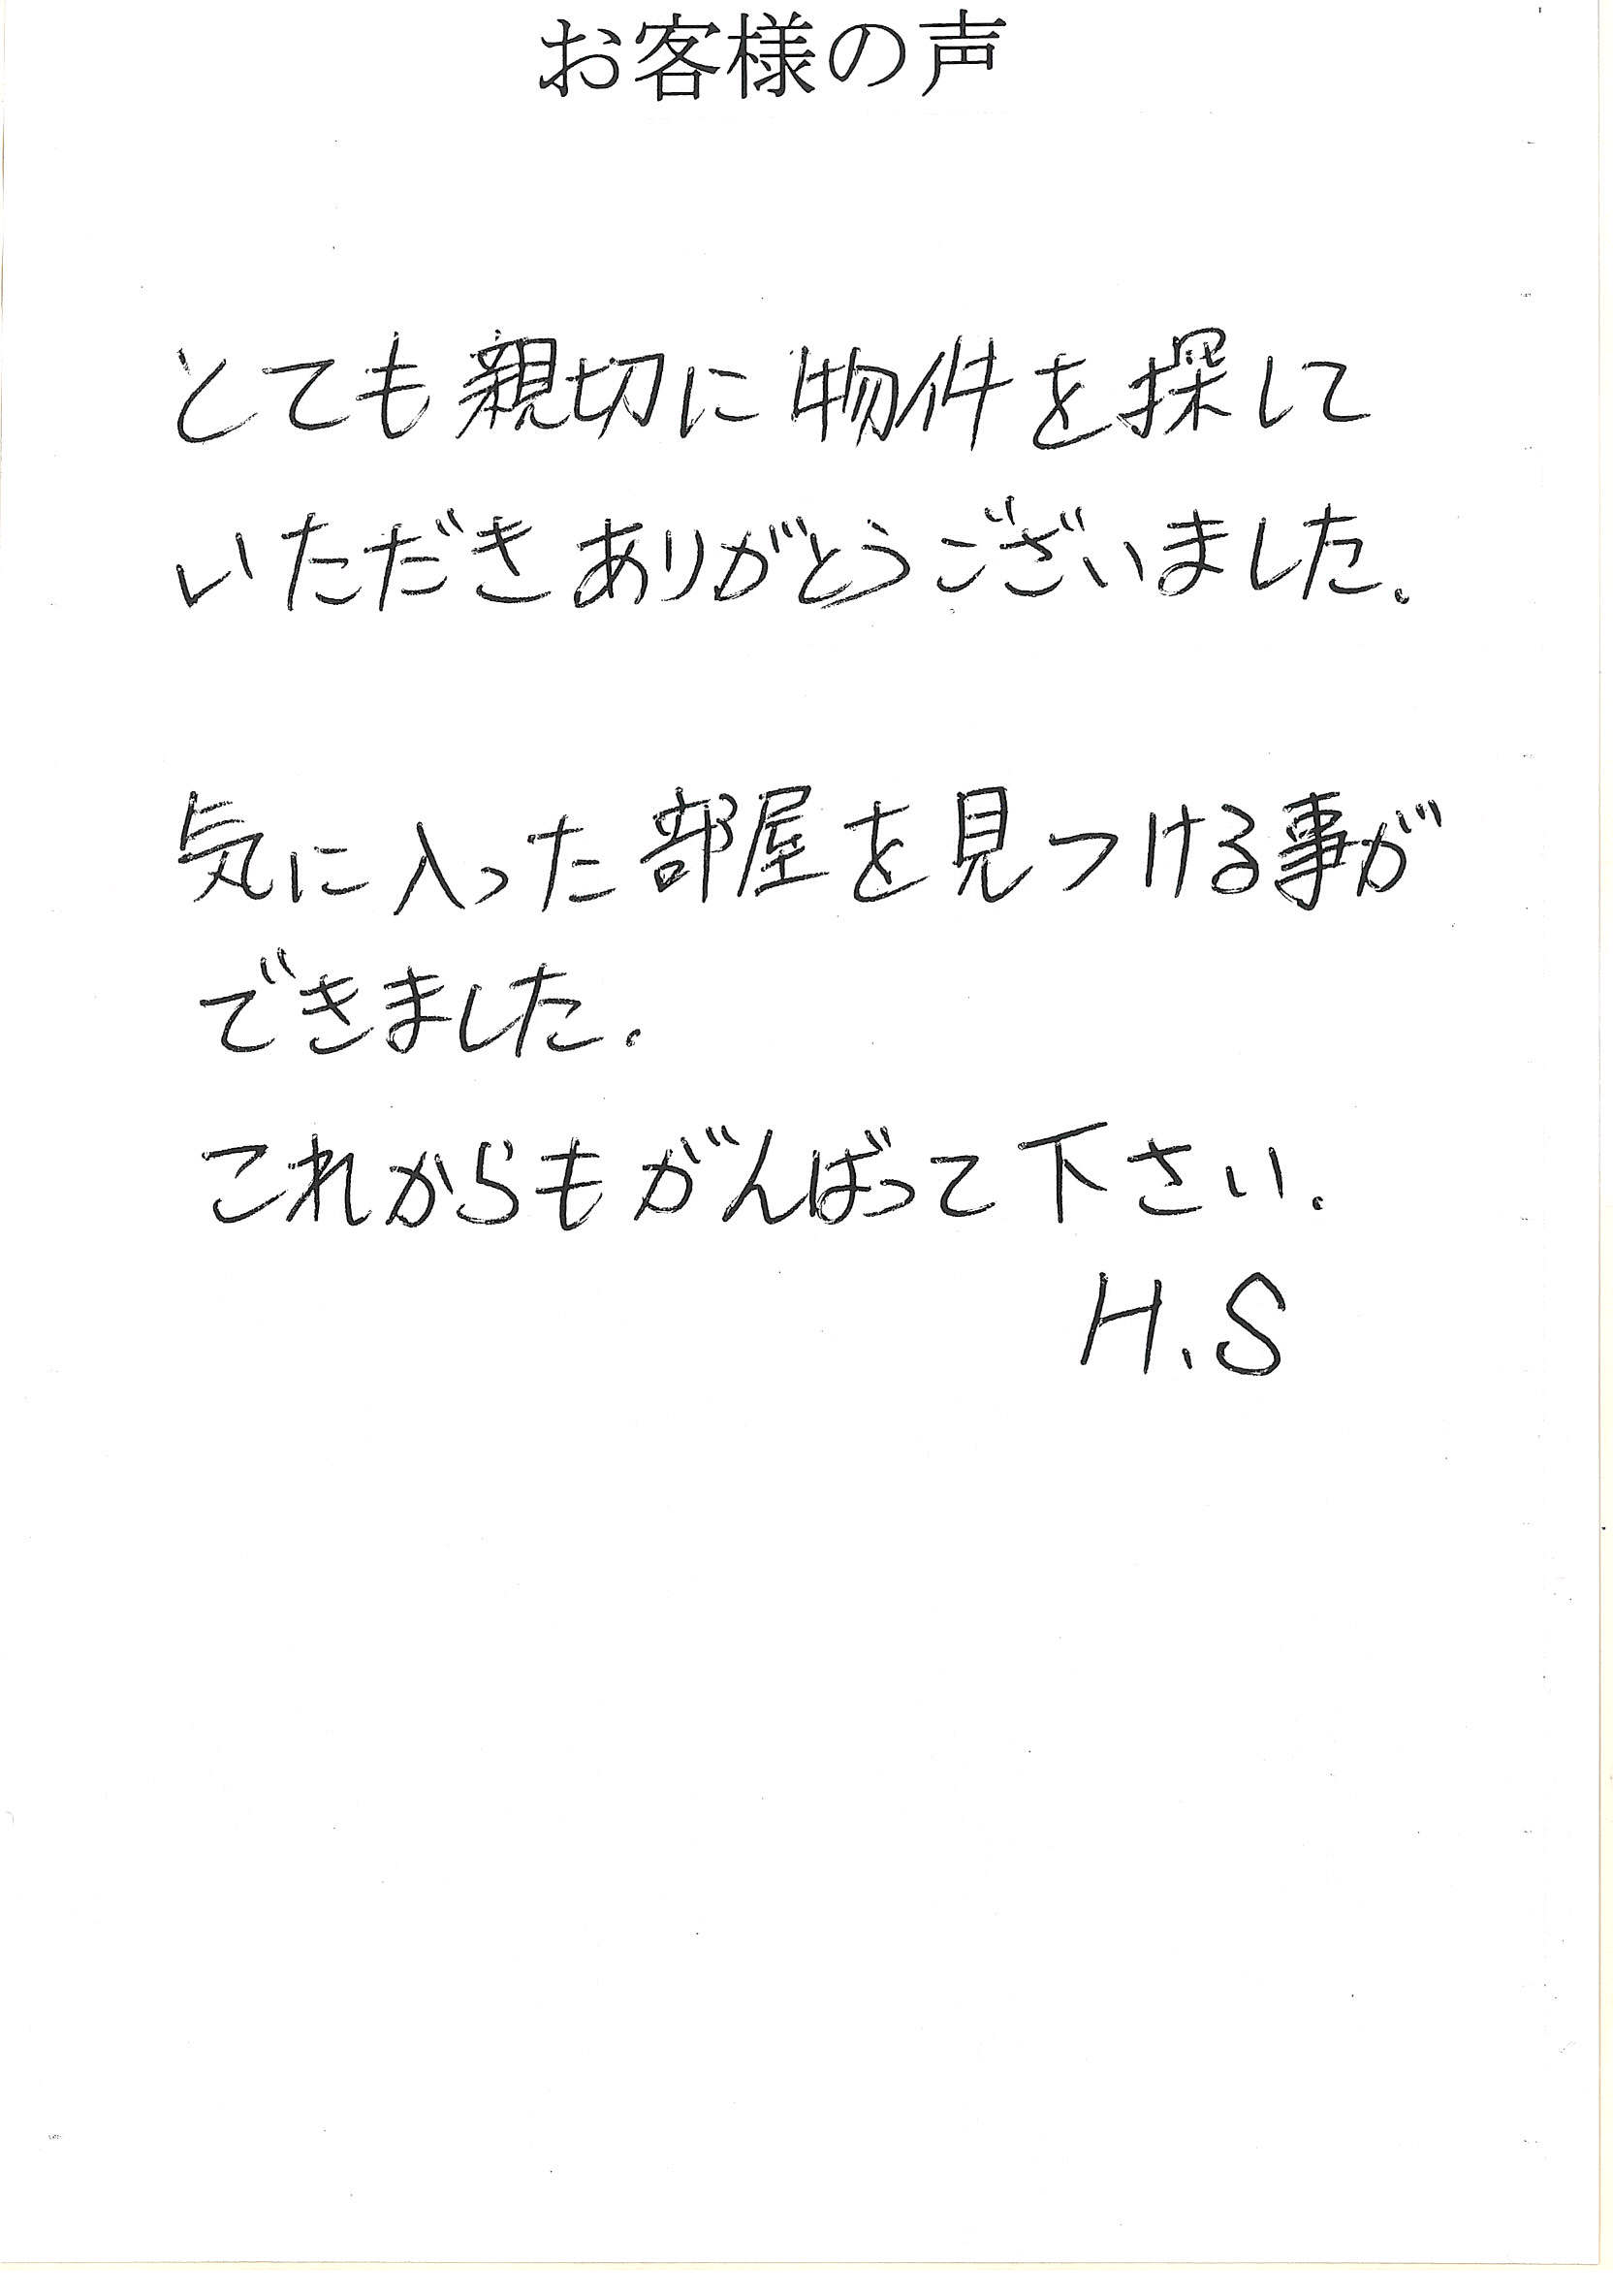 お客様の声
とても親切に物件を探して
いただきありがとうございました.
気に入った部屋を見つける事が
できました.
これからもがんばって下さい.
H.S